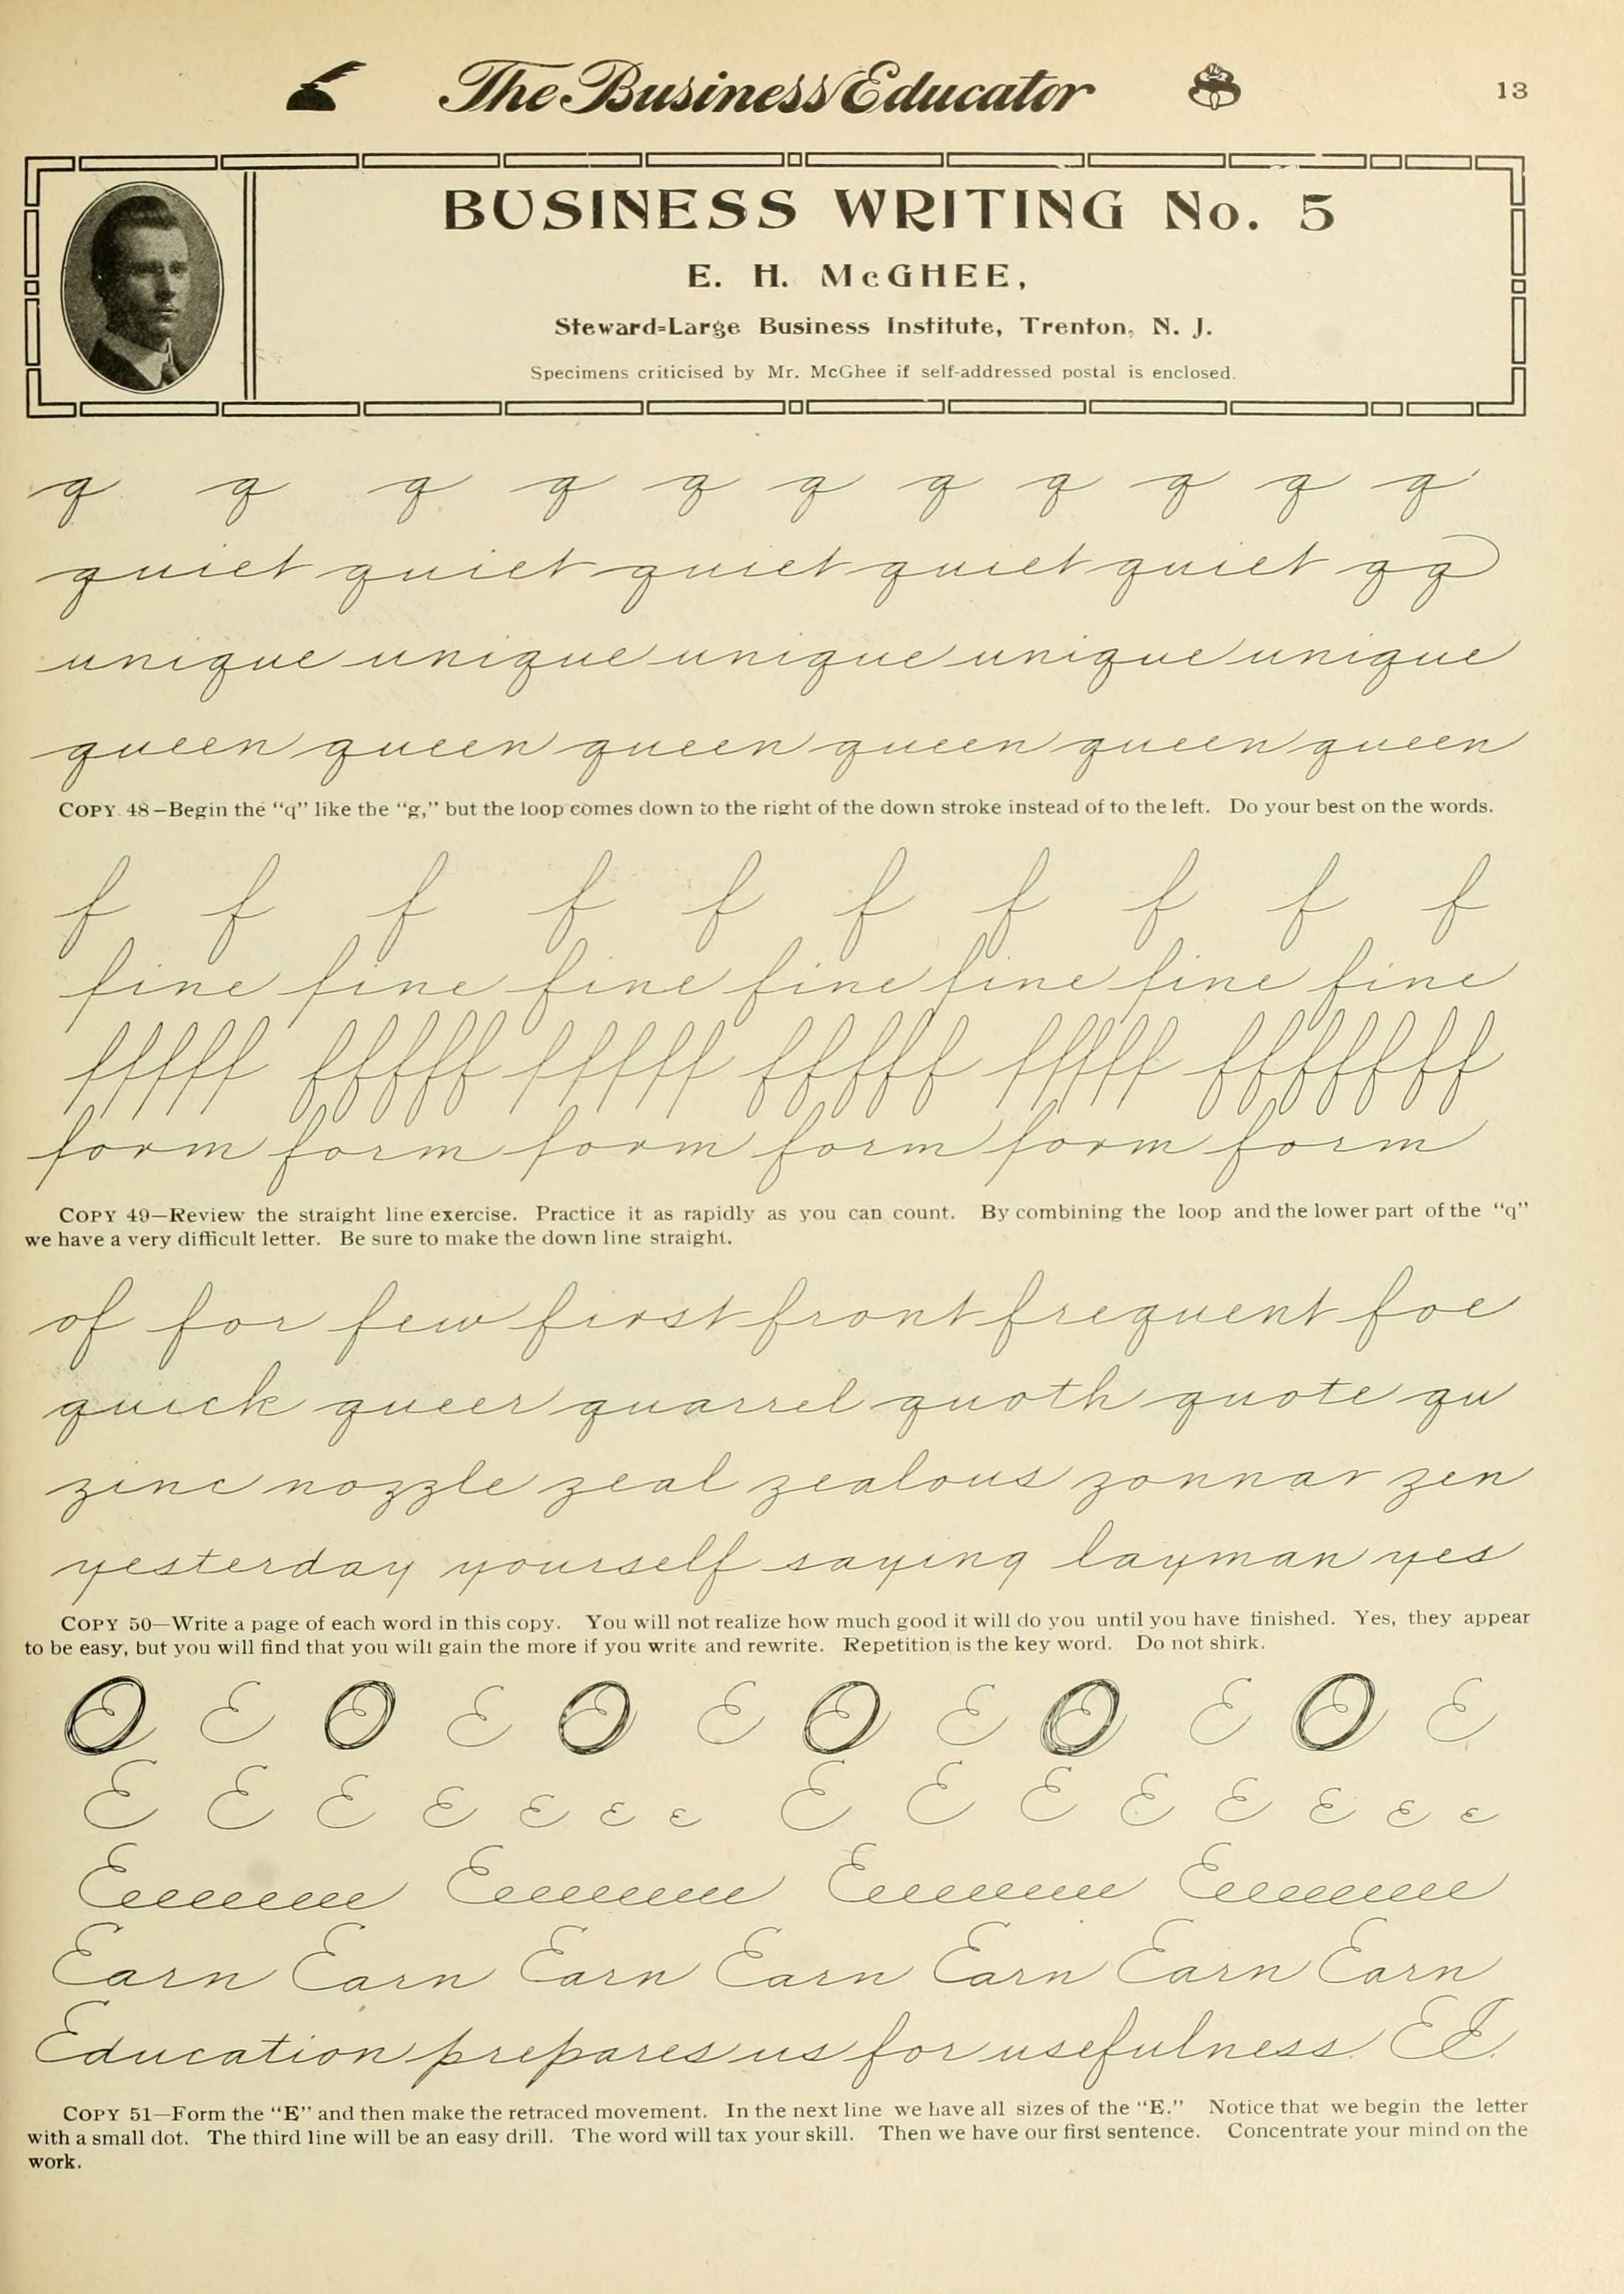 The Business Educator
13
BUSINESS WRITING No. 5
E. H. McGHEE,
Steward=Large Business Institute, Trenton, N. J.
Specimens criticised by Mr. McGhee if self-addressed postal is enclosed.
q q q q q q q q q q q
quiet quiet quiet quiet quiet q q
unique unique unique unique unique
queen queen queen queen queen queen
COPY 48—Begin the "q" like the "g," but the loop comes down to the right of the down stroke instead of to the left. Do your best on the words.
f f f f f f f f f f
fine fine fine fine fine fine fine
fffff fffff fffff fffff fffff fffffff
form form form form form form
COPY 49—Review the straight line exercise. Practice it as rapidly as you can count. By combining the loop and the lower part of the "q"
we have a very difficult letter. Be sure to make the down line straight.
of for few first front frequent foe
quick queer quarrel quoth quote qu
zinc nozzle zeal zealous zonnar zen
yesterday yourself saying layman yes
COPY 50—Write a page of each word in this copy. You will not realize how much good it will do you until you have finished. Yes, they appear
to be easy, but you will find that you will gain the more if you write and rewrite. Repetition is the key word. Do not shirk.
E E E E E E E E E E E E
E E E E E E E E E E E E E E E
Eeeeeeeee Eeeeeeeee Eeeeeeeee Eeeeeeeee
Earn Earn Earn Earn Earn Earn Earn
Education prepares us for usefulness. E E.
COPY 51—Form the "E" and then make the retraced movement. In the next line we have all sizes of the "E." Notice that we begin the letter
with a small dot. The third line will be an easy drill. The word will tax your skill. Then we have our first sentence. Concentrate your mind on the
work.